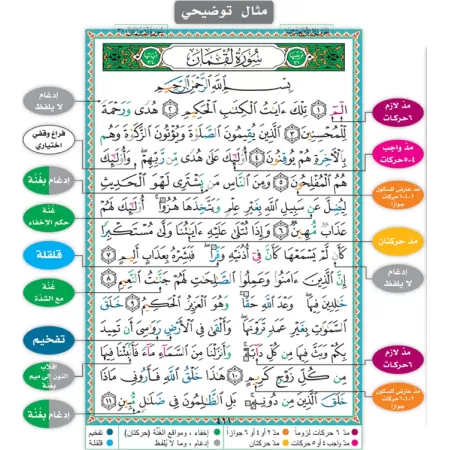 مثال توضيحي
سُورَةُ لُقْمَان
بِسْمِ ٱللَّهِ ٱلرَّحْمَٰنِ ٱلرَّحِيمِ
الٓمٓ ١ تِلْكَ ءَايَٰتُ ٱلْكِتَٰبِ ٱلْحَكِيمِ ٢ هُدًى وَرَحْمَةً
لِّلْمُحْسِنِينَ ٣ ٱلَّذِينَ يُقِيمُونَ ٱلصَّلَوٰةَ وَيُؤْتُونَ ٱلزَّكَوٰةَ وَهُم
بِٱلْأَخِرَةِ هُمْ يُوقِنُونَ ٤ أُوْلَٰٓئِكَ عَلَىٰ هُدًى مِّن رَّبِّهِمْ وَأُوْلَٰٓئِكَ
هُمُ ٱلْمُفْلِحُونَ ٥ وَمِنَ ٱلنَّاسِ مَن يَشْتَرِى لَهْوَ ٱلْحَدِيثِ
لِيُضِلَّ عَن سَبِيلِ ٱللَّهِ بِغَيْرِ عِلْمٍ وَيَتَّخِذَهَا هُزُوًا أُوْلَٰٓئِكَ لَهُمْ
عَذَابٌ مُّهِينٌ ٦ وَإِذَا تُتْلَىٰ عَلَيْهِ ءَايَٰتُنَا وَلَّىٰ مُسْتَكْبِرًا
كَأَن لَّمْ يَسْمَعْهَا كَأَنَّ فِىٓ أُذُنَيْهِ وَقْرًا فَبَشِّرْهُ بِعَذَابٍ أَلِيمٍ ٧
إِنَّ ٱلَّذِينَ ءَامَنُوا۟ وَعَمِلُوا۟ ٱلصَّٰلِحَٰتِ لَهُمْ جَنَّٰتُ ٱلنَّعِيمِ ٨
خَٰلِدِينَ فِيهَا وَعْدَ ٱللَّهِ حَقًّا وَهُوَ ٱلْعَزِيزُ ٱلْحَكِيمُ ٩ خَلَقَ
ٱلسَّمَٰوَٰتِ بِغَيْرِ عَمَدٍ تَرَوْنَهَا وَأَلْقَىٰ فِى ٱلْأَرْضِ رَوَٰسِىَ أَن تَمِيدَ
بِكُمْ وَبَثَّ فِيهَا مِن كُلِّ دَآبَّةٍ وَأَنزَلْنَا مِنَ ٱلسَّمَآءِ مَآءً فَأَنۢبَتْنَا فِيهَا
مِن كُلِّ زَوْجٍ كَرِيمٍ ١٠ هَٰذَا خَلْقُ ٱللَّهِ فَأَرُونِى مَاذَا
خَلَقَ ٱلَّذِينَ مِن دُونِهِۦ بَلِ ٱلظَّٰلِمُونَ فِى ضَلَٰلٍ مُّبِينٍ ١١
٤١١
مدّ لازم
٦ حركات
مدّ واجب
٤-٥ حركات
مدّ عارض للسكون
٢-٤-٦ حركات
جوازاً
مدّ حركتان
إدغام
لا يلفظ
مدّ لازم
٦ حركات
مدّ عارض للسكون
٢-٤-٦ حركات
جوازاً
إدغام
لا يلفظ
فراغ وقفي
اختياري
إدغام بغُنّة
غنّة
حكم الأخفاء
قلقلة
غنّة
مع الشدّة
تفخيم
إقلاب
النون إلى ميم
بغنّة
إدغام بغُنّة
مدّ ٦ حركات لزوماً
مدّ ٢ أو ٤ أو ٦ جوازاً
إخفاء، ومواقع الغُنّة (حركتان)
تفخيم
مدّ واجب ٤ أو ٥ حركات
مدّ حركتان
إدغام، وما لا يُلفظ
قلقلة